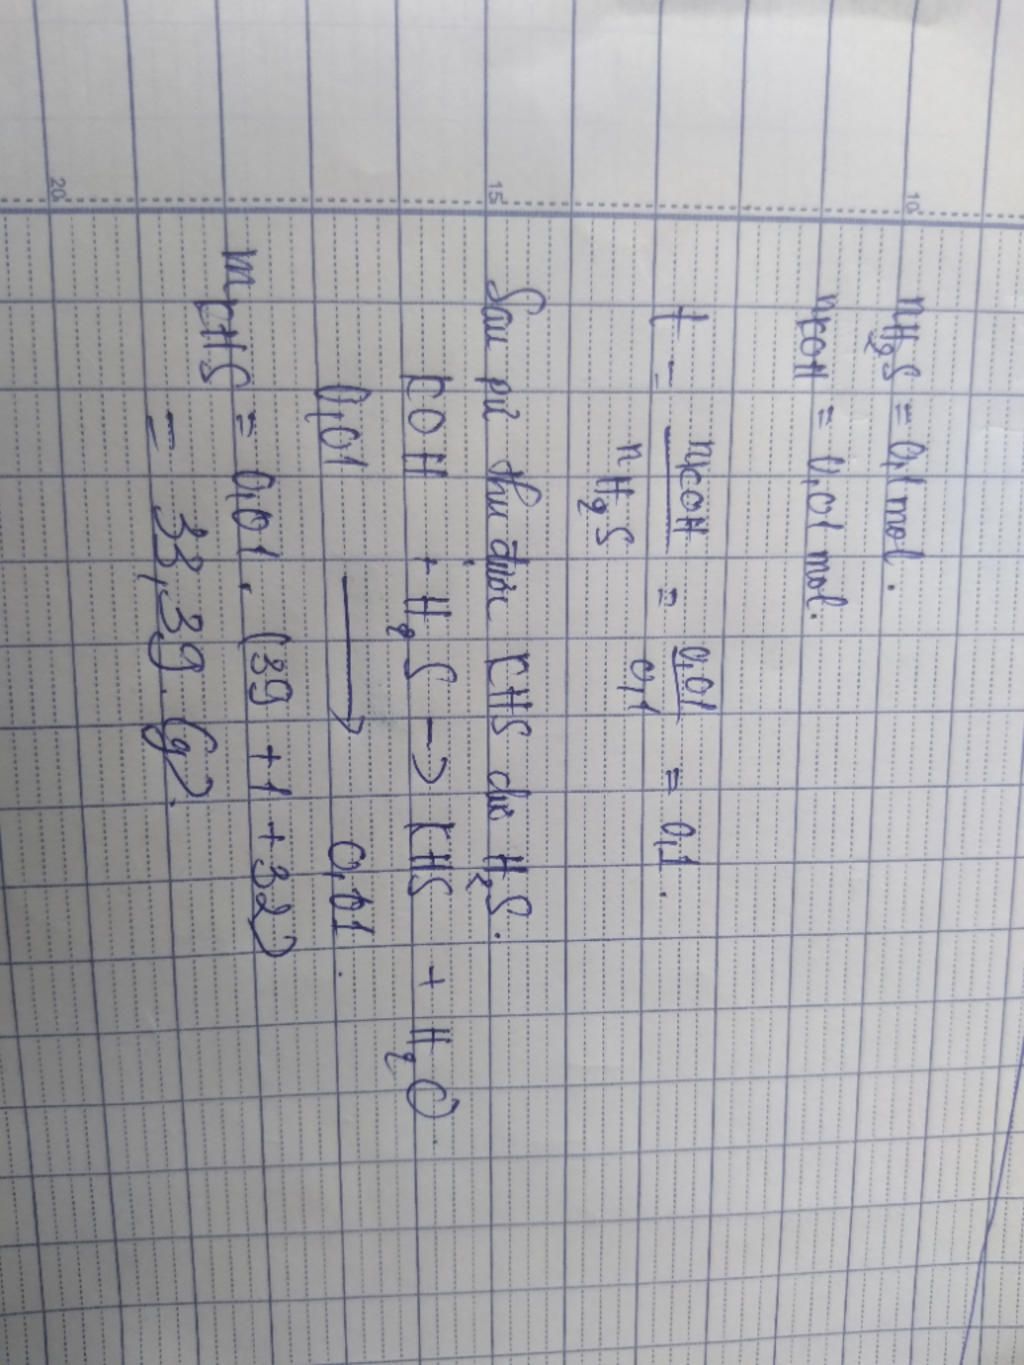 10
nH₂S = 0,1 mol.
nKOH = 0,01 mol.
t = nKOH / nH₂S = 0,01 / 0,1 = 0,1.
15
Sau pứ thu được KHS dư H₂S.
KOH + H₂S → KHS + H₂O
0,01 → 0,01.
mKHS = 0,01 . (39 + 1 + 32)
= 33,39 (g).
20